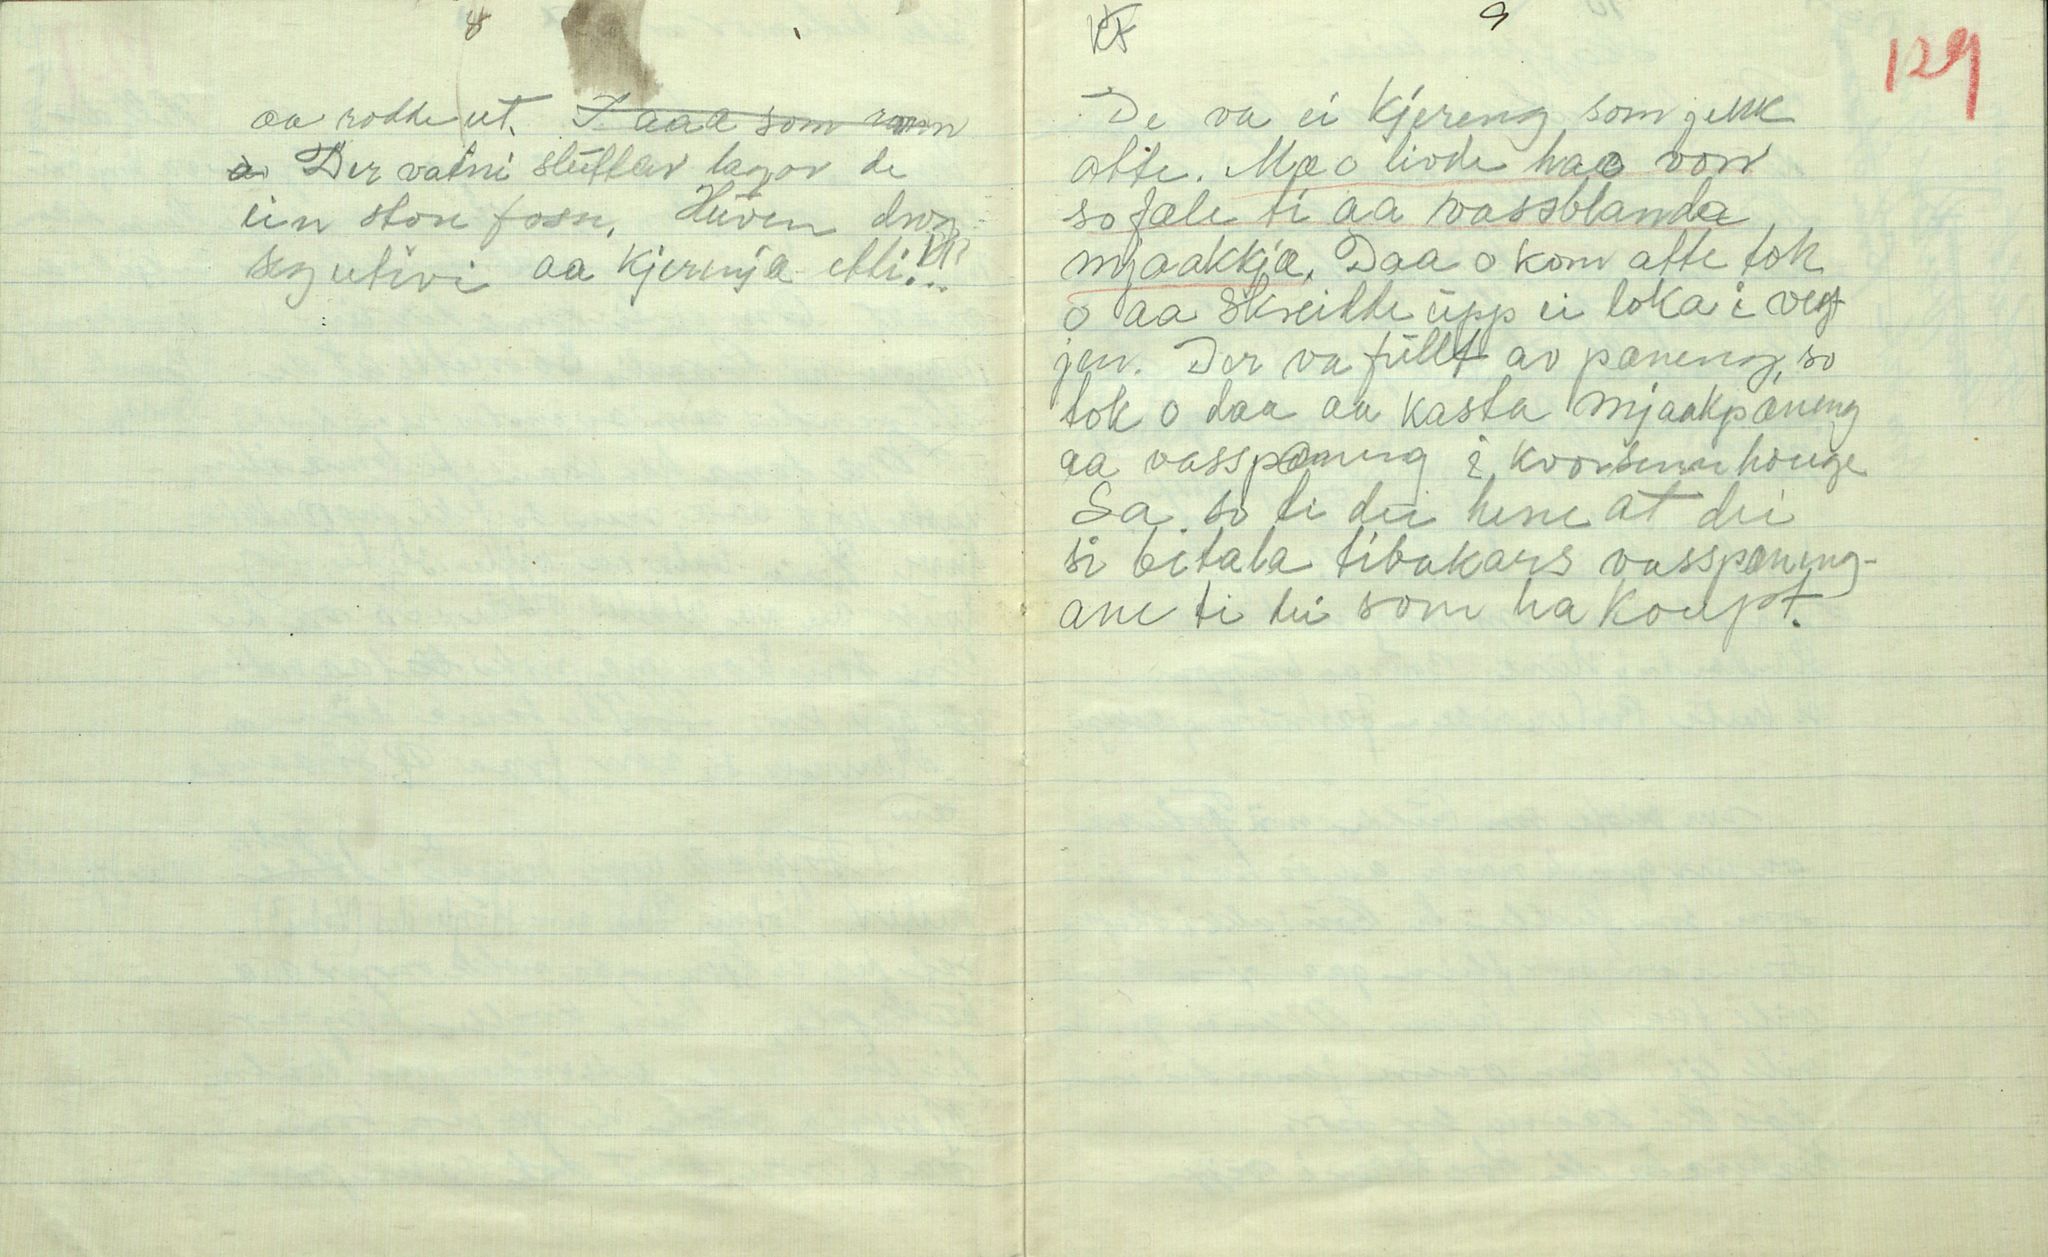 8
aa rodde ut. I aaa som rann
aa Der vatni sluttar lagar de
ein store foss. Huven drog
seg utivi aa kjeringa etti...
9
129
De va ei kjereng som jekk
atte. Mæ o livde hae von
so fale ti aa vassblanda
mjaakkja. Daa o kom atte tok
o aa skreidde üpp ei loka i veg
jen. Der va füllt av pæneng, so
tok o daa aa kasta mjaakpæneng
aa vasspæneng i kvorsinn houge
Sa so ti dei hene at dei
si bitala tibakars vasspæneng-
ane ti dei som ha koupt.